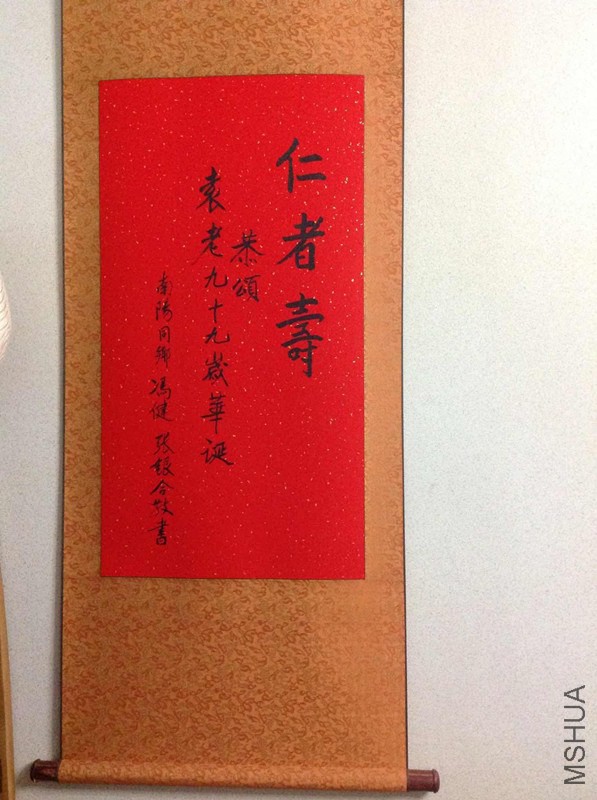 仁者壽
恭頌
袁老九十九歲華誕
南陽同鄉馮健 張銀合敬書
MSHUA